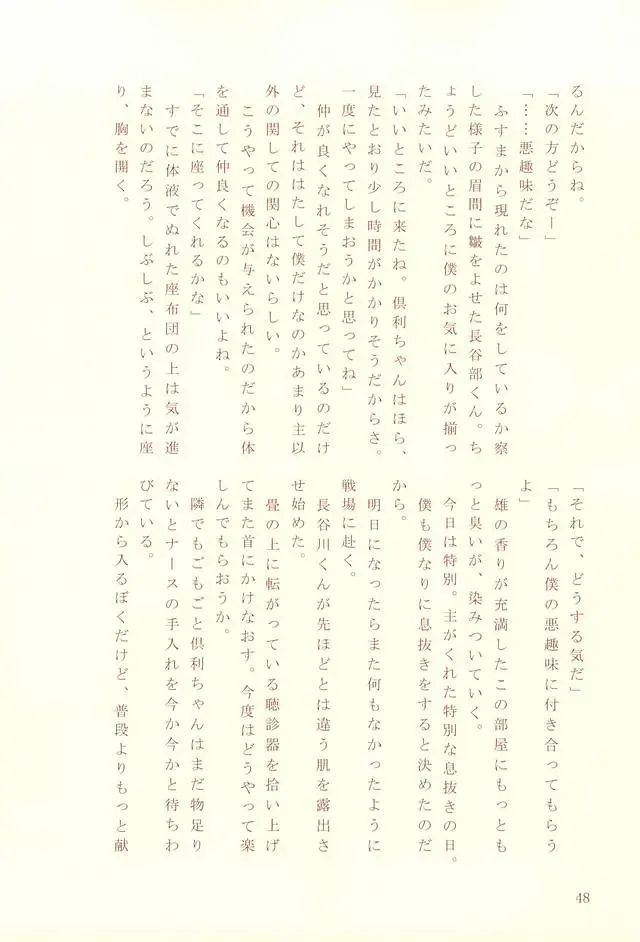 るんだからね。
「次の方どうぞー」
「……悪趣味だな」
　ふすまから現れたのは何をしているか察
した様子の眉間に皺をよせた長谷部くん。ち
ょうどいいところに僕のお気に入りが揃っ
たみたいだ。
「いいところに来たね。倶利ちゃんはほら、
見たとおり少し時間がかかりそうだからさ。
一度にやってしまおうかと思ってね」
　仲が良くなれそうだと思っているのだけ
ど、それははたして僕だけなのかあまり主以
外の関しての関心はないらしい。
　こうやって機会が与えられたのだから体
を通して仲良くなるのもいいよね。
「そこに座ってくれるかな」
　すでに体液でぬれた座布団の上は気が進
まないのだろう。しぶしぶ、というように座
り、胸を開く。
「それで、どうする気だ」
「もちろん僕の悪趣味に付き合ってもらう
よ」
　雄の香りが充満したこの部屋にもっとも
っと臭いが、染みついていく。
　今日は特別。主がくれた特別な息抜きの日。
　僕も僕なりに息抜きをすると決めたのだ
から。
　明日になったらまた何もなかったように
戦場に赴く。
　長谷川くんが先ほどとは違う肌を露出さ
せ始めた。
　畳の上に転がっている聴診器を拾い上げ
てまた首にかけなおす。今度はどうやって楽
しんでもらおうか。
　隣でもごもごと倶利ちゃんはまだ物足り
ないとナースの手入れを今か今かと待ちわ
びている。
　形から入るぼくだけど、普段よりもっと献
48